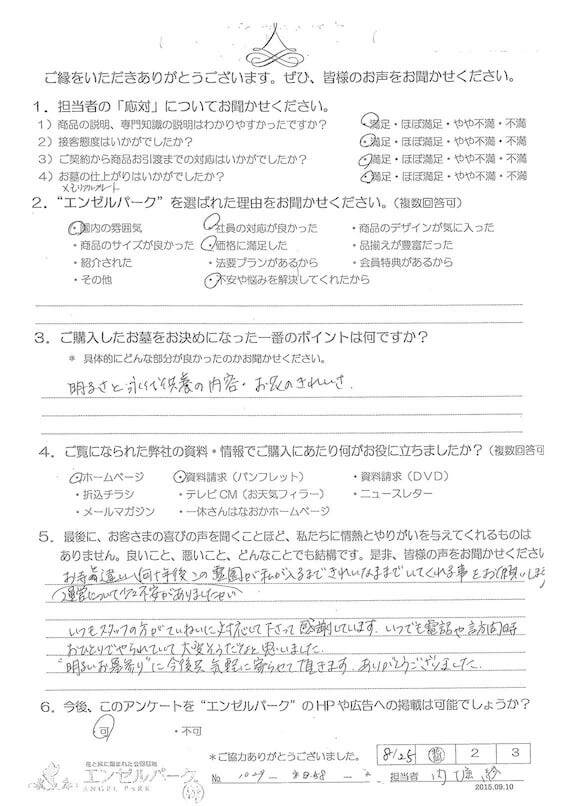 ご縁をいただきありがとうございます。ぜひ、皆様のお声をお聞かせください。
1．担当者の「応対」についてお聞かせください。
1）商品の説明、専門知識の説明はわかりやすかったですか？ 満足・ほぼ満足・やや不満・不満
2）接客態度はいかがでしたか？ ・満足・ほぼ満足・やや不満・不満
3）ご契約から商品お引渡までの対応はいかがでしたか？ ・満足・ほぼ満足・やや不満・不満
4）お墓の仕上がりはいかがでしたか？ ・満足・ほぼ満足・やや不満・不満
メモリアルプレート
2．“エンゼルパーク”を選ばれた理由をお聞かせください。（複数回答可）
・園内の雰囲気 ・社員の対応が良かった ・商品のデザインが気に入った
・商品のサイズが良かった ・価格に満足した ・品揃えが豊富だった
・紹介された ・法要プランがあるから ・会員特典があるから
・その他 ・不安や悩みを解決してくれたから
3．ご購入したお墓をお決めになった一番のポイントは何ですか？
＊ 具体的にどんな部分が良かったのかお聞かせください。
明るさと永代供養の内容・お花のきれいさ.
4．ご覧になられた弊社の資料・情報でご購入にあたり何がお役に立ちましたか？（複数回答可
・ホームページ ・資料請求（パンフレット） ・資料請求（DVD）
・折込チラシ ・テレビCM（お天気フィラー） ・ニュースレター
・メールマガジン ・一休さんはなおかホームページ
5．最後に、お客さまの喜びの声を聞くことほど、私たちに情熱とやりがいを与えてくれるものは
ありません。良いこと、悪いこと、どんなことでも結構です。是非、皆様の声をお聞かせください
お寺と違い、何十年後この霊園が私が入るまできれいなままでいてくれる事をお願いしま
については少々不安がありましたが
いつもスタッフの方がていねいに対応して下さって感謝しています. いつでも電話や訪問時
おひとりでやられていて大変そうだなぁと思いました.
“明るいお墓参り”に今後も気軽に寄らせて頂きます. ありがとうございました.
6．今後、このアンケートを“エンゼルパーク”のHPや広告への掲載は可能でしょうか？
・可 ・不可
花と緑に囲まれた公園墓地
エンゼルパーク
ANGEL PARK
＊ご協力ありがとうございました。
8/25 2 3
No 担当者
2015.09.10